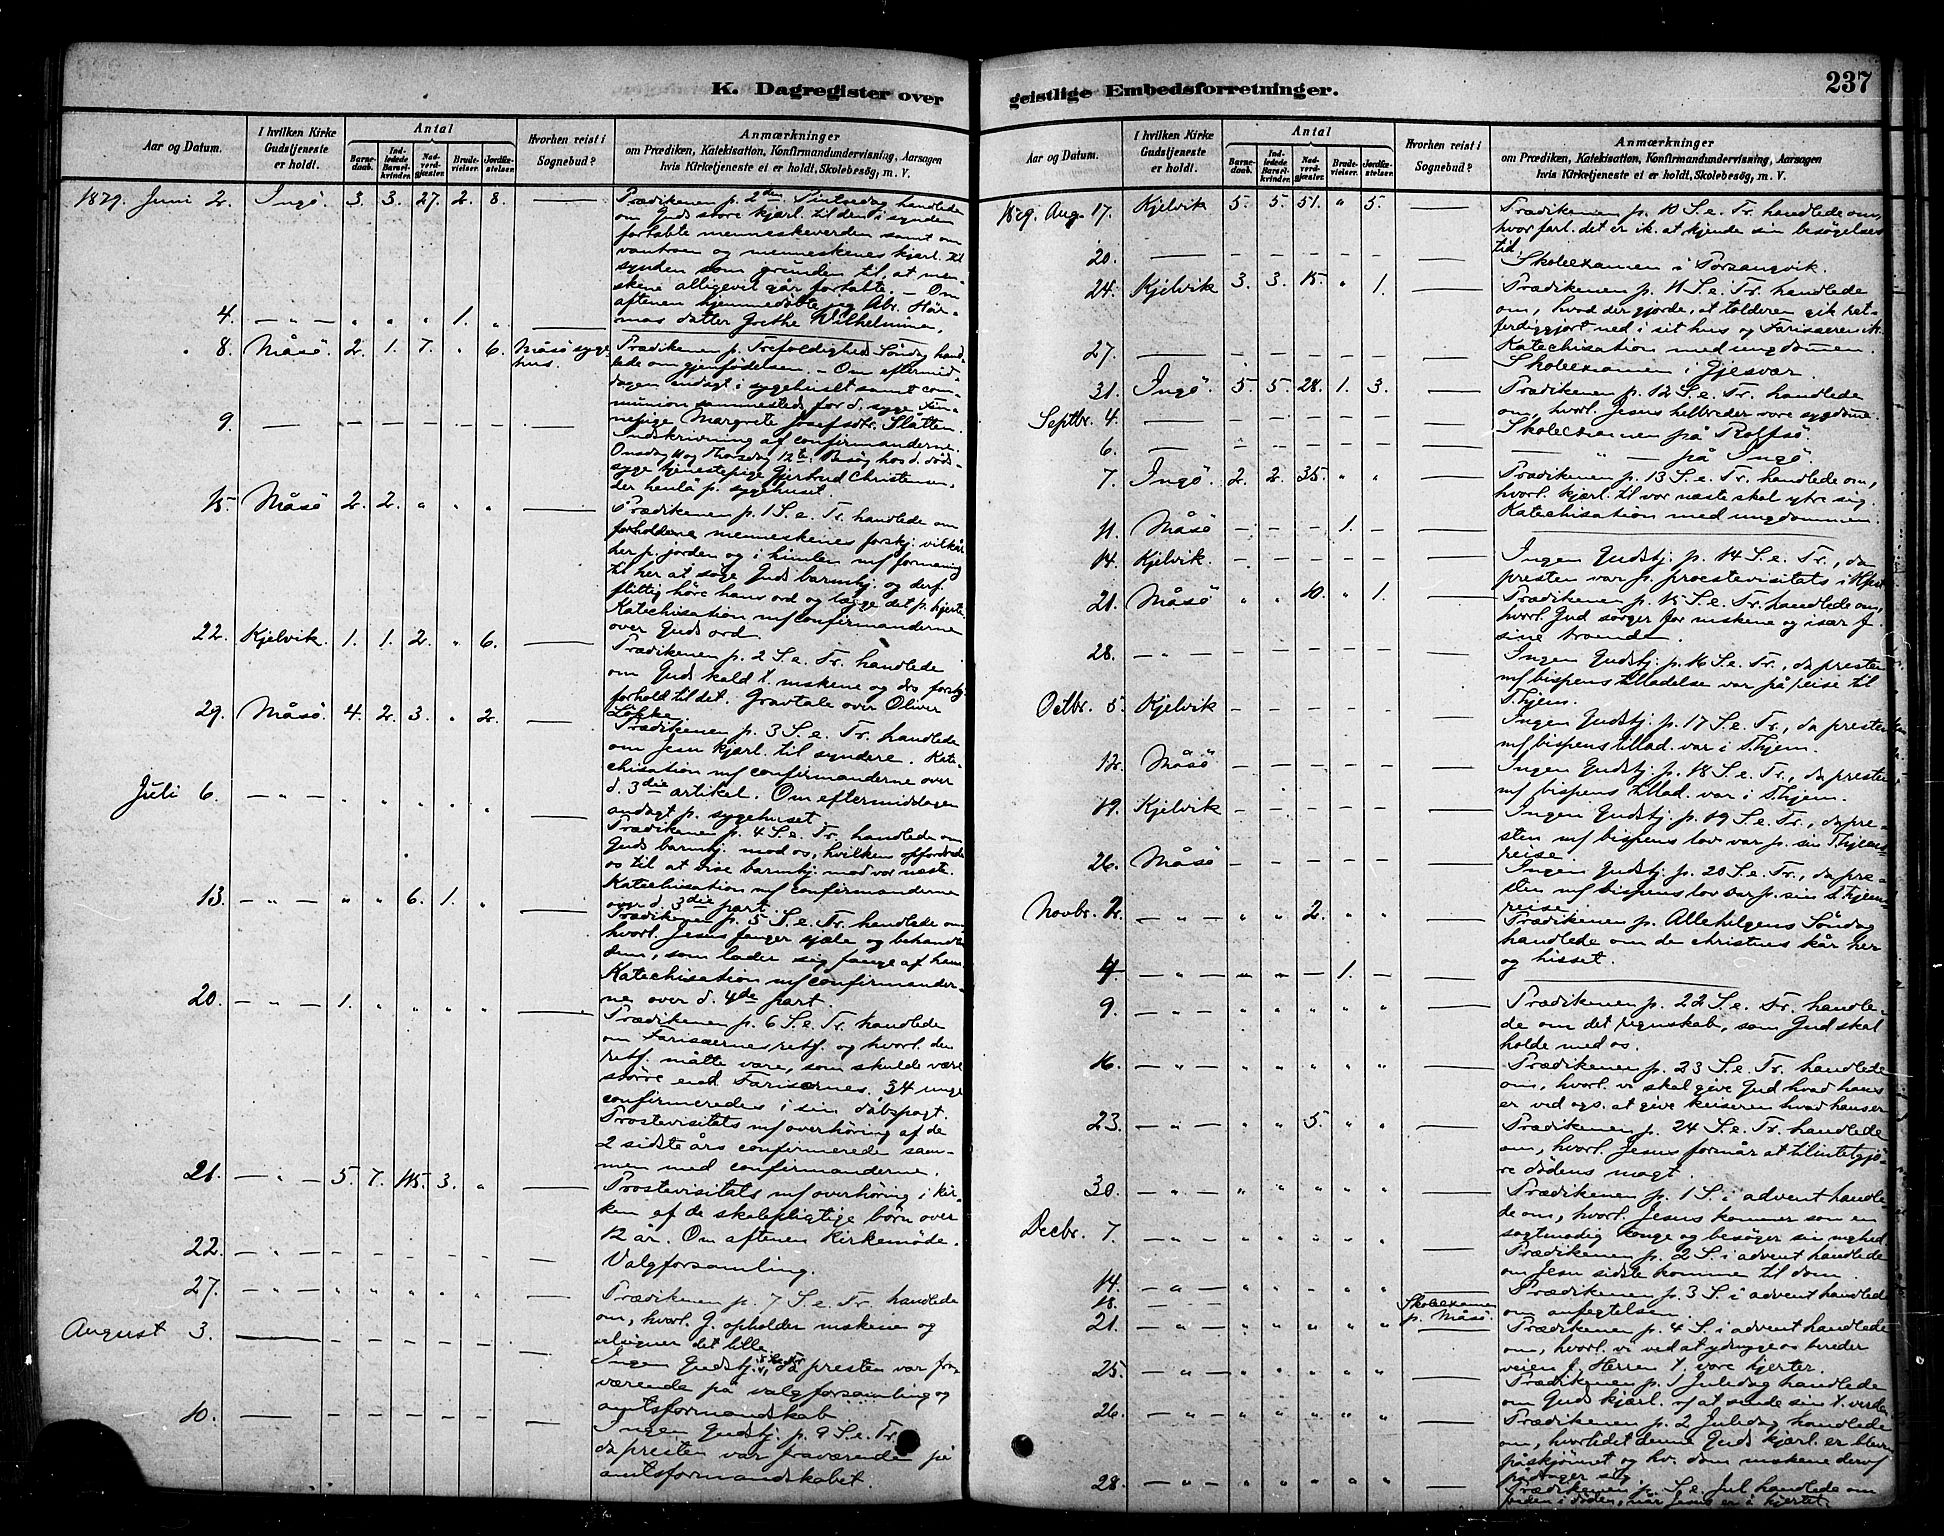 K. Dagregister over
Aar og Datum.
I hvilken Kirke Gudstjeneste er holdt.
Antal
Barnedaab.
Indledede Barselkvinder.
Nadverdgjæster.
Brudevielser.
Jordfæstelser.
Hvorhen reist i Sognebud?
Anmærkninger
om Prædiken, Katekisation, Konfirmandundervisning, Aarsagen
hvis Kirketjeneste ei er holdt, Skolebesøg, m. V.
1879. Juni 2. Ingö. 3. 3. 27. 2. 8. —
Prædikenen p. 2den Pintsedag handlede
om Guds store kjærl. til den i synden
fortabte menneskeverden samt om
vantroen og menneskenes kjærl. til
synden som grunden til, at men-
skene alligevel går fortabte. — Om
aftenen hjemmedöbte jeg Abr. Här-
mas datter Grethe Wilhelmine.
4. — " — " " " 1. " —
8. Måsö. 2. 1. 7. " 6. Måsö syge-
hus.
Prædikenen p. Trefoldigheds Söndag hand-
lede om gjenfödelsen. — Om eftermid-
dagen andagt i sygehuset samt com-
munion sammesteds for d. syge Fin-
nepige Margrete Josefsdtr. Slåtten.
9. — — — — — — —
Indskrivning af confirmanderne.
Onsdag 11 og Thorsdag 12te Besög hos d. döds-
syge tjenestepige Gjertrud Christensen,
der henlå p. sygehuset.
15. Måsö 2. 2. " " " —
Prædikenen p. 1 S. e. Tr. handlede om
forholdene menneskenes forskj. vilkår
her p. jorden og i himlen mf formaning
til her at söge Guds barmhj. og derf.
flittig höre hans ord og lægge det p. hjerte.
Katechisation mf confirmanderne
over Guds ord.
22. Kjelvik. 1. 1. 2. " 6. —
Prædikenen p. 2 S. e. Tr. handlede
om Guds kald t. mskene og drs forskj.
forhold til det. Gravtale over Oliver
Lökke.
29. Måsö. 4. 2. 3. " 2. —
Prædikenen p. 3 S. e. Tr. handlede
om Jesu kjærl. til syndere. Kate-
chisation mf confirmanderne over
d. 3die artikel. Om eftermiddagen
andagt p. sygehuset
Juli 6. — " — " " " " " —
Prædikenen p. 4 S. e. Tr. handlede om
Guds barmhj. mod os, hvilken opfordrede
os til at vise barmhj. mod vor næste.
Katechisation mf confirmanderne
over d. 3die part.
13. — " — " " 6. 1. " —
Prædikenen p. 5 S. e. Tr. handlede om
hvorl. Jesus fanger sjæle og behandler
dem, som lader sig fange af ham
Katechisation mf confirmander-
ne over d. 4de part.
20. — " — 1. " " " " —
Prædikenen p. 6 S. e. Tr. handlede
om Farisæernes retf. og hvorl. den
retf. måtte være, som skulde være
större end Farisærnes. 34 unge
confirmeredes i sin dåbspagt.
Prostevisitats mf overhöring af de
2 sidste års confirmerede sam-
men med confirmanderne.
21. — " — 5. 7. 145. 3. " —
Prostevisitats mf overhöring i kir-
ken af de skolepligtige börn over
12 år. Om aftenen Kirkemöde.
22. — " — — — — — — —
Valgforsamling.
27. — " — " " " " " —
Prædikenen p. 7 S. e. Tr. handlede
om, hvorl. G. opholder mskene og
velsigner det lille
August 3. — — — — — — —
Ingen Gudstj. p. 8 S. e. Tr. da presten var fra-
værende på valgforsamling og
amtsformandskab
10. — — — — — — —
Ingen Gudstj. p. 9 S. e. Tr.
da presten var fraværende på
amtsformandskabet.
geistlige Embedsforretninger.
237
Aar og Datum.
I hvilken Kirke Gudstjeneste er holdt.
Antal
Barnedaab.
Indledede Barselkvinder.
Nadverdgjæster.
Brudevielser.
Jordfæstelser.
Hvorhen reist i Sognebud?
Anmærkninger
om Prædiken, Katekisation, Konfirmandundervisning, Aarsagen
hvis Kirketjeneste ei er holdt, Skolebesøg, m. V.
1879. Aug. 17. Kjelvik 5. 5. 51. " 5. —
Prædikenen p. 10 S. e. Tr. handlede om,
hvor farl. det er ik. at kjende sin besögelses
tid.
20. — — — — — — —
Skoleexamen i Porsangvik.
24. Kjelvik 3. 3. 15. " 1. —
Prædikenen p. 11 S. e. Tr. handlede
om, hvad der gjorde, at tolderen gik ret-
færdiggjort ned i sit hus og Farisæeren ik.
Katechisation med ungdommen.
27. — — — — — — —
Skoleexamen i Gjesvær.
31. Ingö 5. 5. 28. 1. 3. —
Prædikenen p. 12 S. e. Tr. handlede
om, hvorl. Jesus helbreder vore sygdomme.
Septbr. 4. — — — — — — —
Skoleexamen på Rolfsö.
6. — — — — — — —
— " — på Ingö
7. Ingö 2. 2. 35. " " —
Prædikenen p. 13 S. e. Tr. handlede om,
hvorl. kjærl. til vor næste skal ytre sig.
Katechisation med ungdommen.
11. Måsö — — — 1. — —
14. Kjelvik. — — — — — —
Ingen Gudstj. p. 14 S. e. Tr., da
presten var p. proestevisitats i Kfst.
21. Måsö " " 10. " 1. —
Prædikenen p. 15 S. e. Tr. handlede om,
hvorl. Gud sörger for mskene og især f.
sine troende.
28. — " — — — — — — —
Ingen Gudstj. p. 16 S. e. Tr., da presten
mf bispens tilladelse var på reise til
T.hjem.
Octbr. 5. Kjelvik — — — — — —
Ingen Gudstj. p. 17 S. e. Tr., da presten
mf bispens tillad. var i T.hjem.
12. Måsö — — — — — —
Ingen Gudstj. p. 18 S. e. Tr., da presten
mf bispens tillad. var i T.hjem.
19. Kjelvik — — — — — —
Ingen Gudstj. p. 19 S. e. Tr., da pre-
sten mf bispens lov var p. sin T.hjems-
reise.
26. Måsö — — — — — —
Ingen Gudstj. p. 20 S. e. Tr., da pre-
sten mf bispens lov var p. sin T.hjems-
reise.
Novbr. 2. — " — " " 2. " " —
Prædikenen p. Allehelgens Söndag
handlede om de christnes kår her
og hisset.
4. — " — — — — 1. — —
9. — " — " " " " " —
Prædikenen p. 22 S. e. Tr. handle-
de om det regnskab, som Gud skal
holde med os.
16. — " — " " " " " —
Prædikenen p. 23 S. e. Tr. handlede
om, hvorl. vi skal give Gud hvad hans
er ved ogs. at give keiseren hvad hans er
23. — " — " " 5. " " —
Prædikenen p. 24 S. e. Tr. handlede
om, hvorl. Jesus formår at tilintetgjö-
re dödens magt.
30. — " — " " " " " —
Prædikenen p. 1 S. i advent handle-
de om, hvorl. Jesus kommer som en
sagtmodig konge og besöger sin menighed
Decbr. 7. — " — " " " " " —
Prædikenen p. 2 S. i advent handlede
om Jesu sidste komme til dom.
14. — " — " " " " "
Prædikenen p. 3 S. i advent handlede
om anfegtelsen.
18. — — — Skoleexamen
p. Måsö.
21. — " — " " " " "
Prædikenen p. 4 S. i advent handlede
om, hvorl. vi ved at ydmyge os bereder
veien f. Herren t. vore hjerter.
25. — " — " " " " " —
Prædikenen p. 1 Juledag handlede
om Guds kjærl. v/ at sende sin s. t. verden
26. — " — " " " " " —
Prædikenen p. 2 Juledag handlede
om, hvorledes denne Guds kjærl. er bleven
påskjönnet og hv. dom mskene derv/
pådrager sig
28. — " — " " " " " —
Prædikenen p. S. e. Jul handlede om
freden i döden, når Jesus er i hjertet.